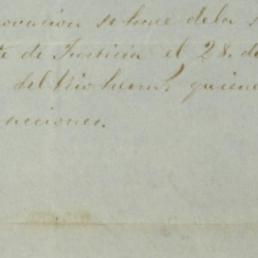 ovacion se hace de la
te de Justicia el 28. de
del Rio quiene
acciones.